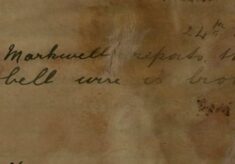 24th
Markwell reports t
bell wire is bro